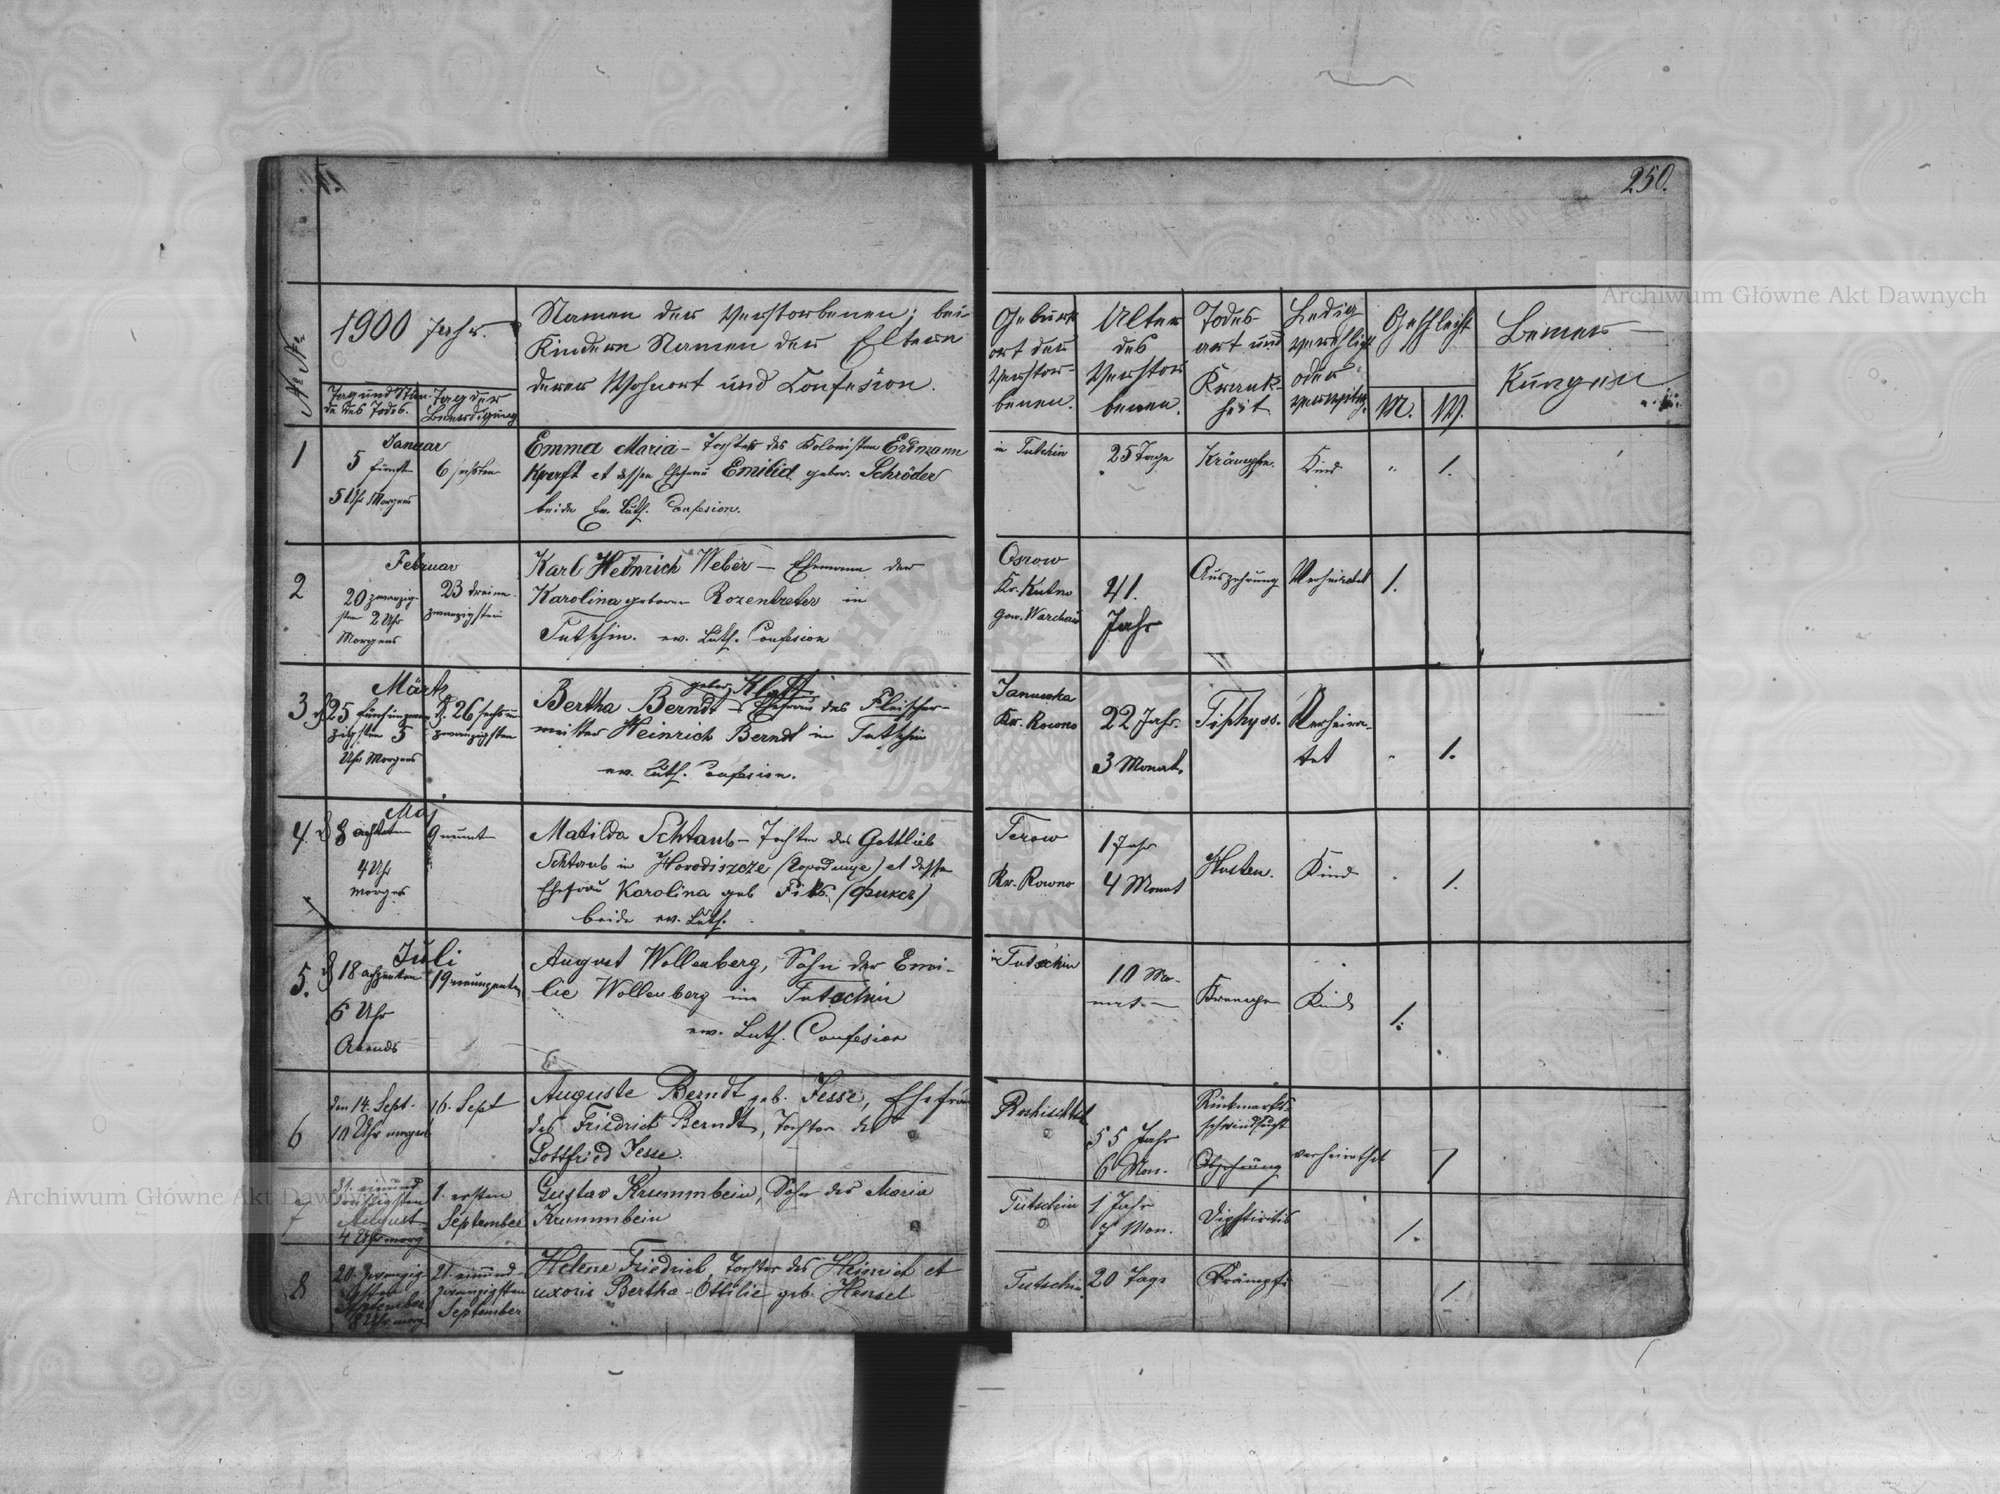 250.
№ №
1900 Jahr.
Tag und Stun-
de des Todes.
Tag der
Beerdigung
Namen der Verstorbenen; bei
Kindern Namen der Eltern
deren Wohnort und Confesion.
Geburt
ort der
Verstor-
benen.
Alter
des
Verstor
benen.
Todes
art und
Krank-
heit
Ledig
verehligt
oder
Geschlecht
M.
W.
Bemer-
kungen
1
Januar
5 fünft
5 Uhr Morgens
6 sechsten
Emma Maria – Tochter des Kolonisten Erdmann
Kraft et dessen Ehefrau Emilia gebor. Schröder
beide Ev. Luth. Confesion.
in Tutchin
25 Tage
Krämpfe.
Kind
"
1.
2
Februar
20 zwanzig-
sten 2 Uhr
Morgens
23 dreiun-
zwanzigsten
Karl Heinrich Weber – Ehemann der
Karolina geboren Rozentreter in
Tutschin. ev. Luth. Confesion
Osrow
Kr. Kutno
Gow. Warchau
41.
Jahr
Auszehrung
Verheiratet
1.
3
Märtz
25 fünfunzwan
zigsten 5
Uhr Morgens
26 sechsun
zwanzigsten
gebor. Klatt
Bertha Berndt – Ehefrau des Fleischer-
meister Heinrich Berndt in Tutschin
ev. Luth. Confesion.
Januwka
Kr. Rowno
22 Jahr.
3 Monat
Tiphyss.
Verheira-
tet
1.
4.
Maj
8 achten
4 Uhr
morges
9 neunt
Matilda Schtaub – Tochter des Gottlieb
Schtaub in Horodiszcze (Городище) et dessen
Ehefrau Karolina geb Fiks. (Фиксъ)
beide ev. Luth.
Terow
Kr. Rowno
1 Jahr
4 Monat
Husten.
Kind
1.
5.
Juli
18 achzenten
6 Uhr
Abends
19 neunzenten
August Wollenberg, Sohn der Emi-
lie Wollenberg in Tutschin
ev. Luth. Confesion
in Tutschin
10 Mo-
nat. –
Kind
1.
6
den 14. Sept.
10 Uhr morgens
16. Sept
Auguste Berndt geb. Jesse, Ehefrau
des Friedrich Berndt, Tochter des
Gottfried Jesse.
55 Jahr
6 Mon.
Rückmarks-
schwindsucht
verheirathet
1
7
31. einund
dreißigsten
August
4 Uhr morg
1. ersten
September
Gustav Krummbein, Sohn des Maria
Krummbein
Tutschin
1 Jahr
7 Mon.
Diphtiritis
1.
8
20. zwanzig
sten
September
8 Uhr morg.
21. einund-
zwanzigsten
September
Helene Friedrich, Tochter des Heinrich et
uxoris Bertha-Ottilie geb. Hensel
Tutschin
20 Tage
Krämpfe
1
Archiwum Główne Akt Dawnych
Archiwum Główne Akt Dawnych